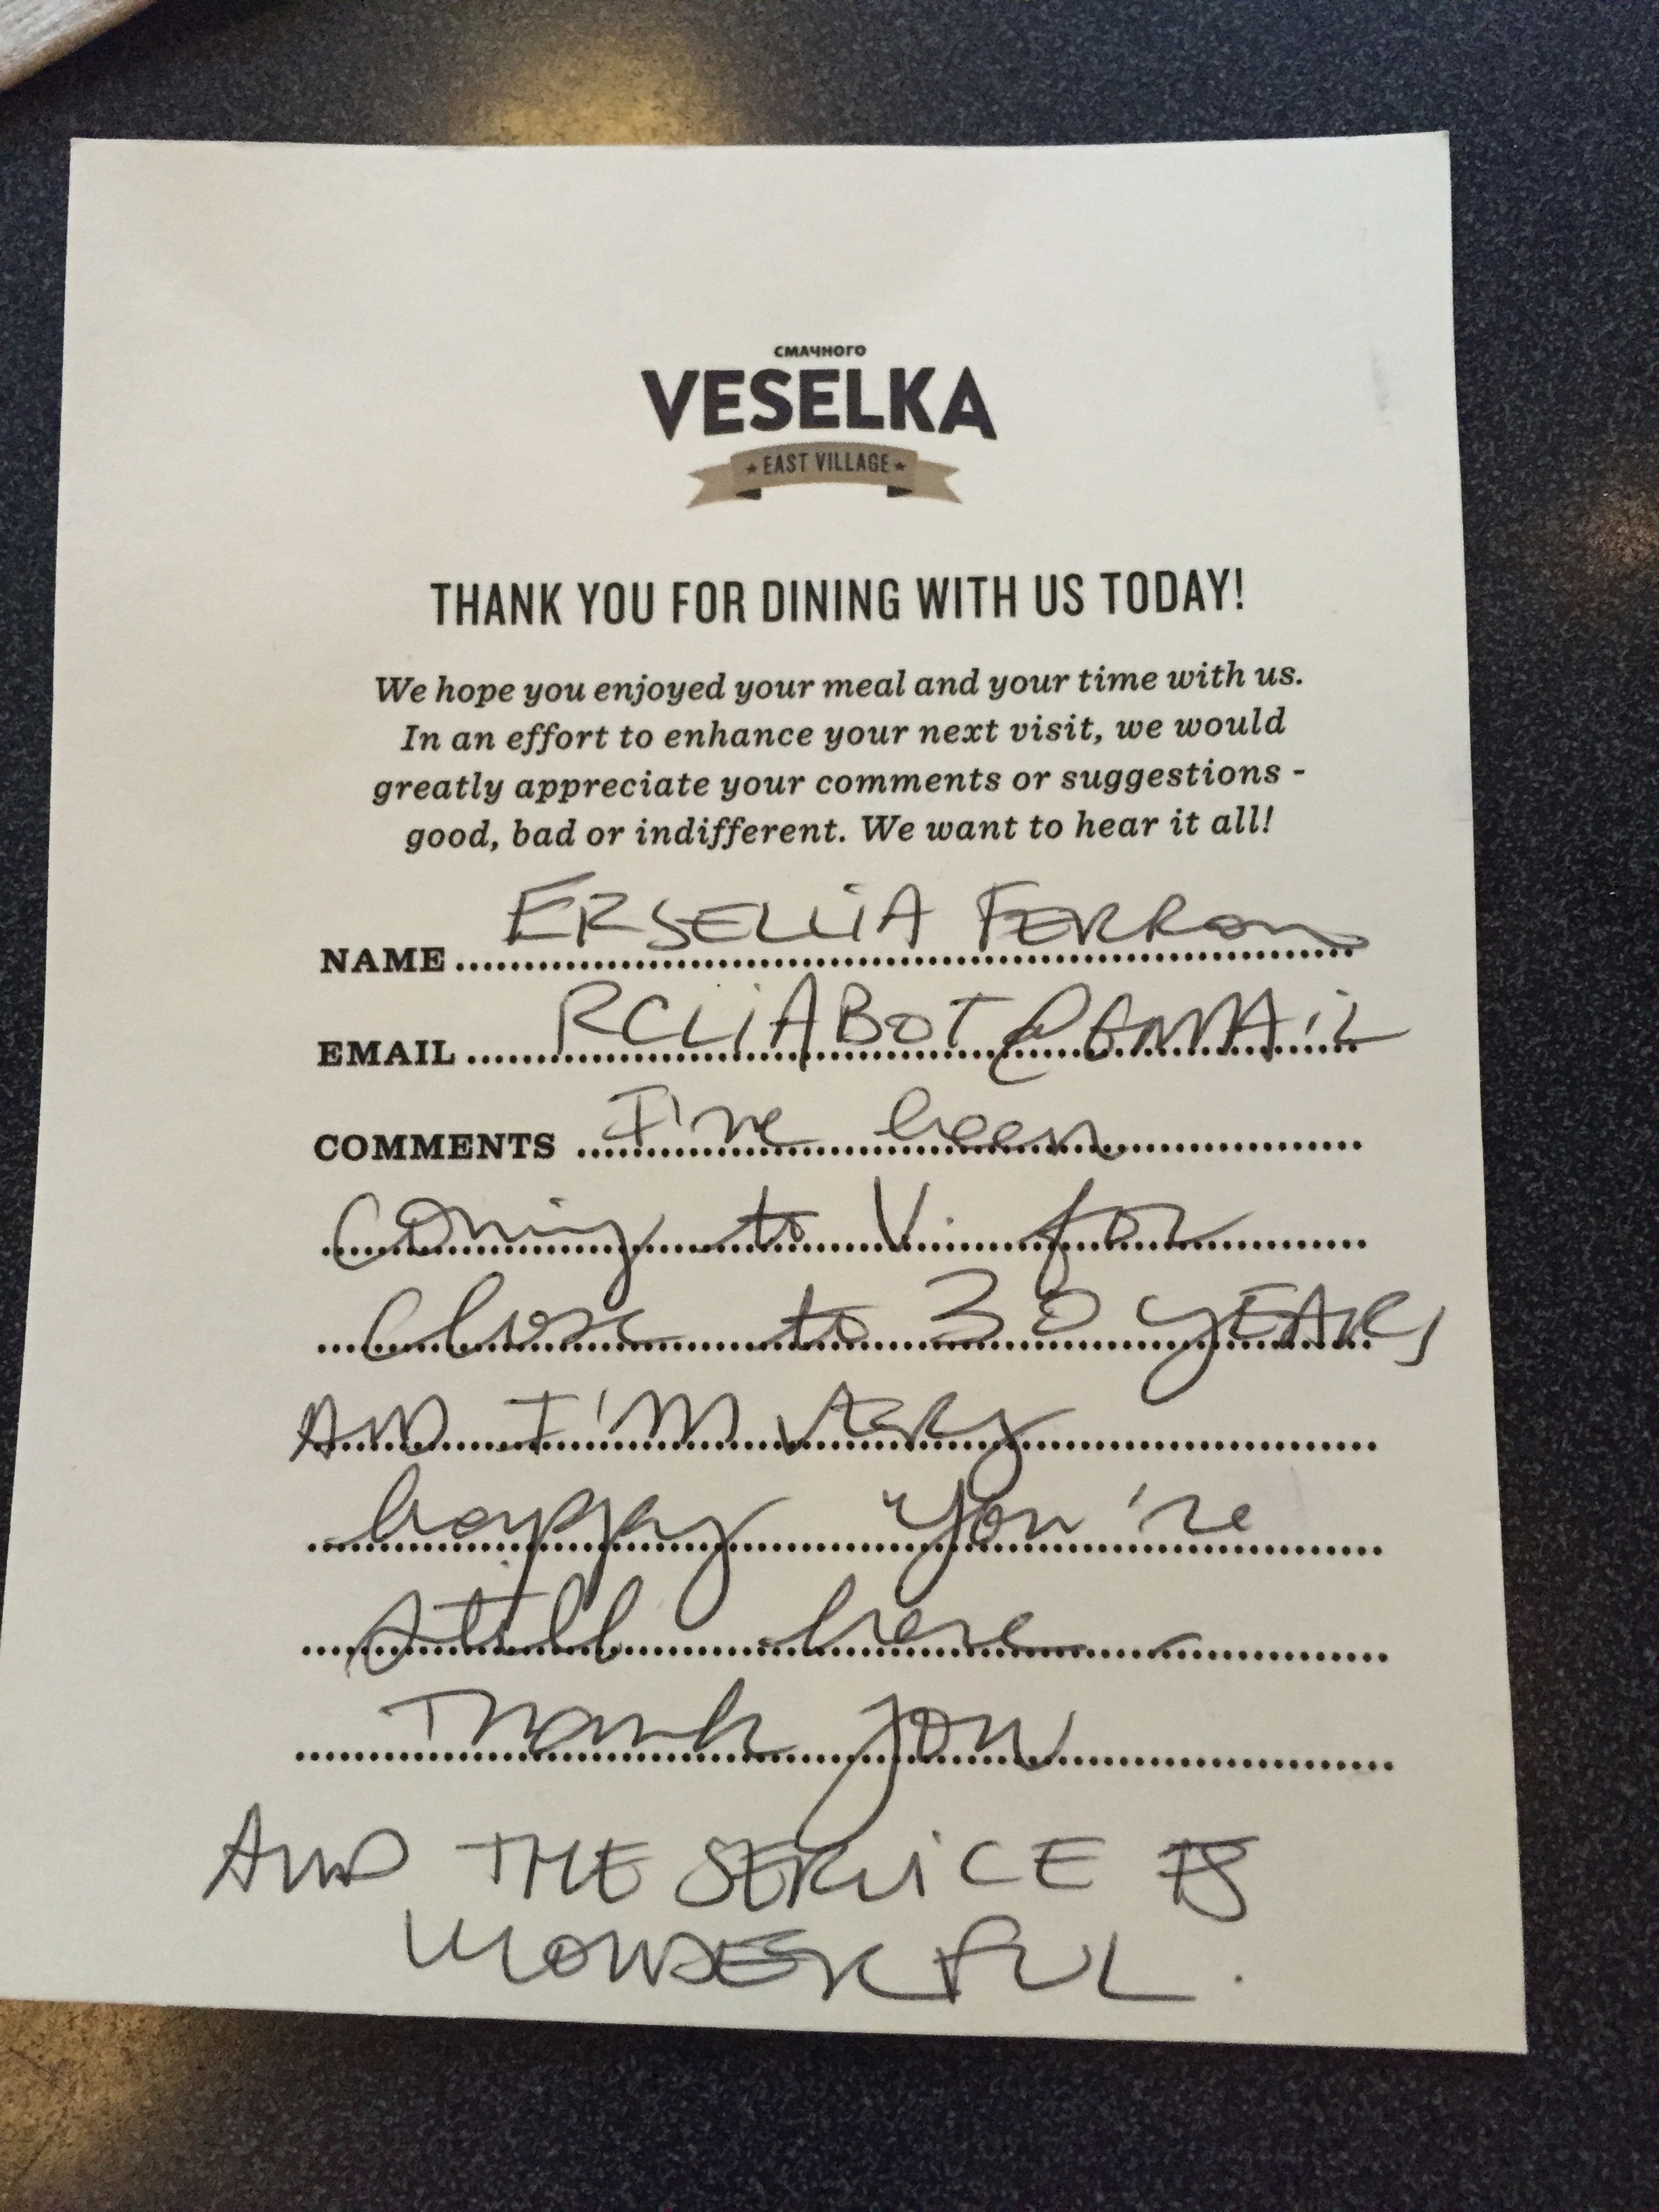 СМАЧНОГО
VESELKA
★ EAST VILLAGE ★
THANK YOU FOR DINING WITH US TODAY!
We hope you enjoyed your meal and your time with us.
In an effort to enhance your next visit, we would
greatly appreciate your comments or suggestions -
good, bad or indifferent. We want to hear it all!
NAME ERSELLIA FERRON
EMAIL RCLIABOT@GMAIL
COMMENTS I've been
coming to V. for
close to 30 YEARS
AND I'M VERY
happy you're
still here -
Thank you
AND THE SERVICE IS
WONDERFUL.